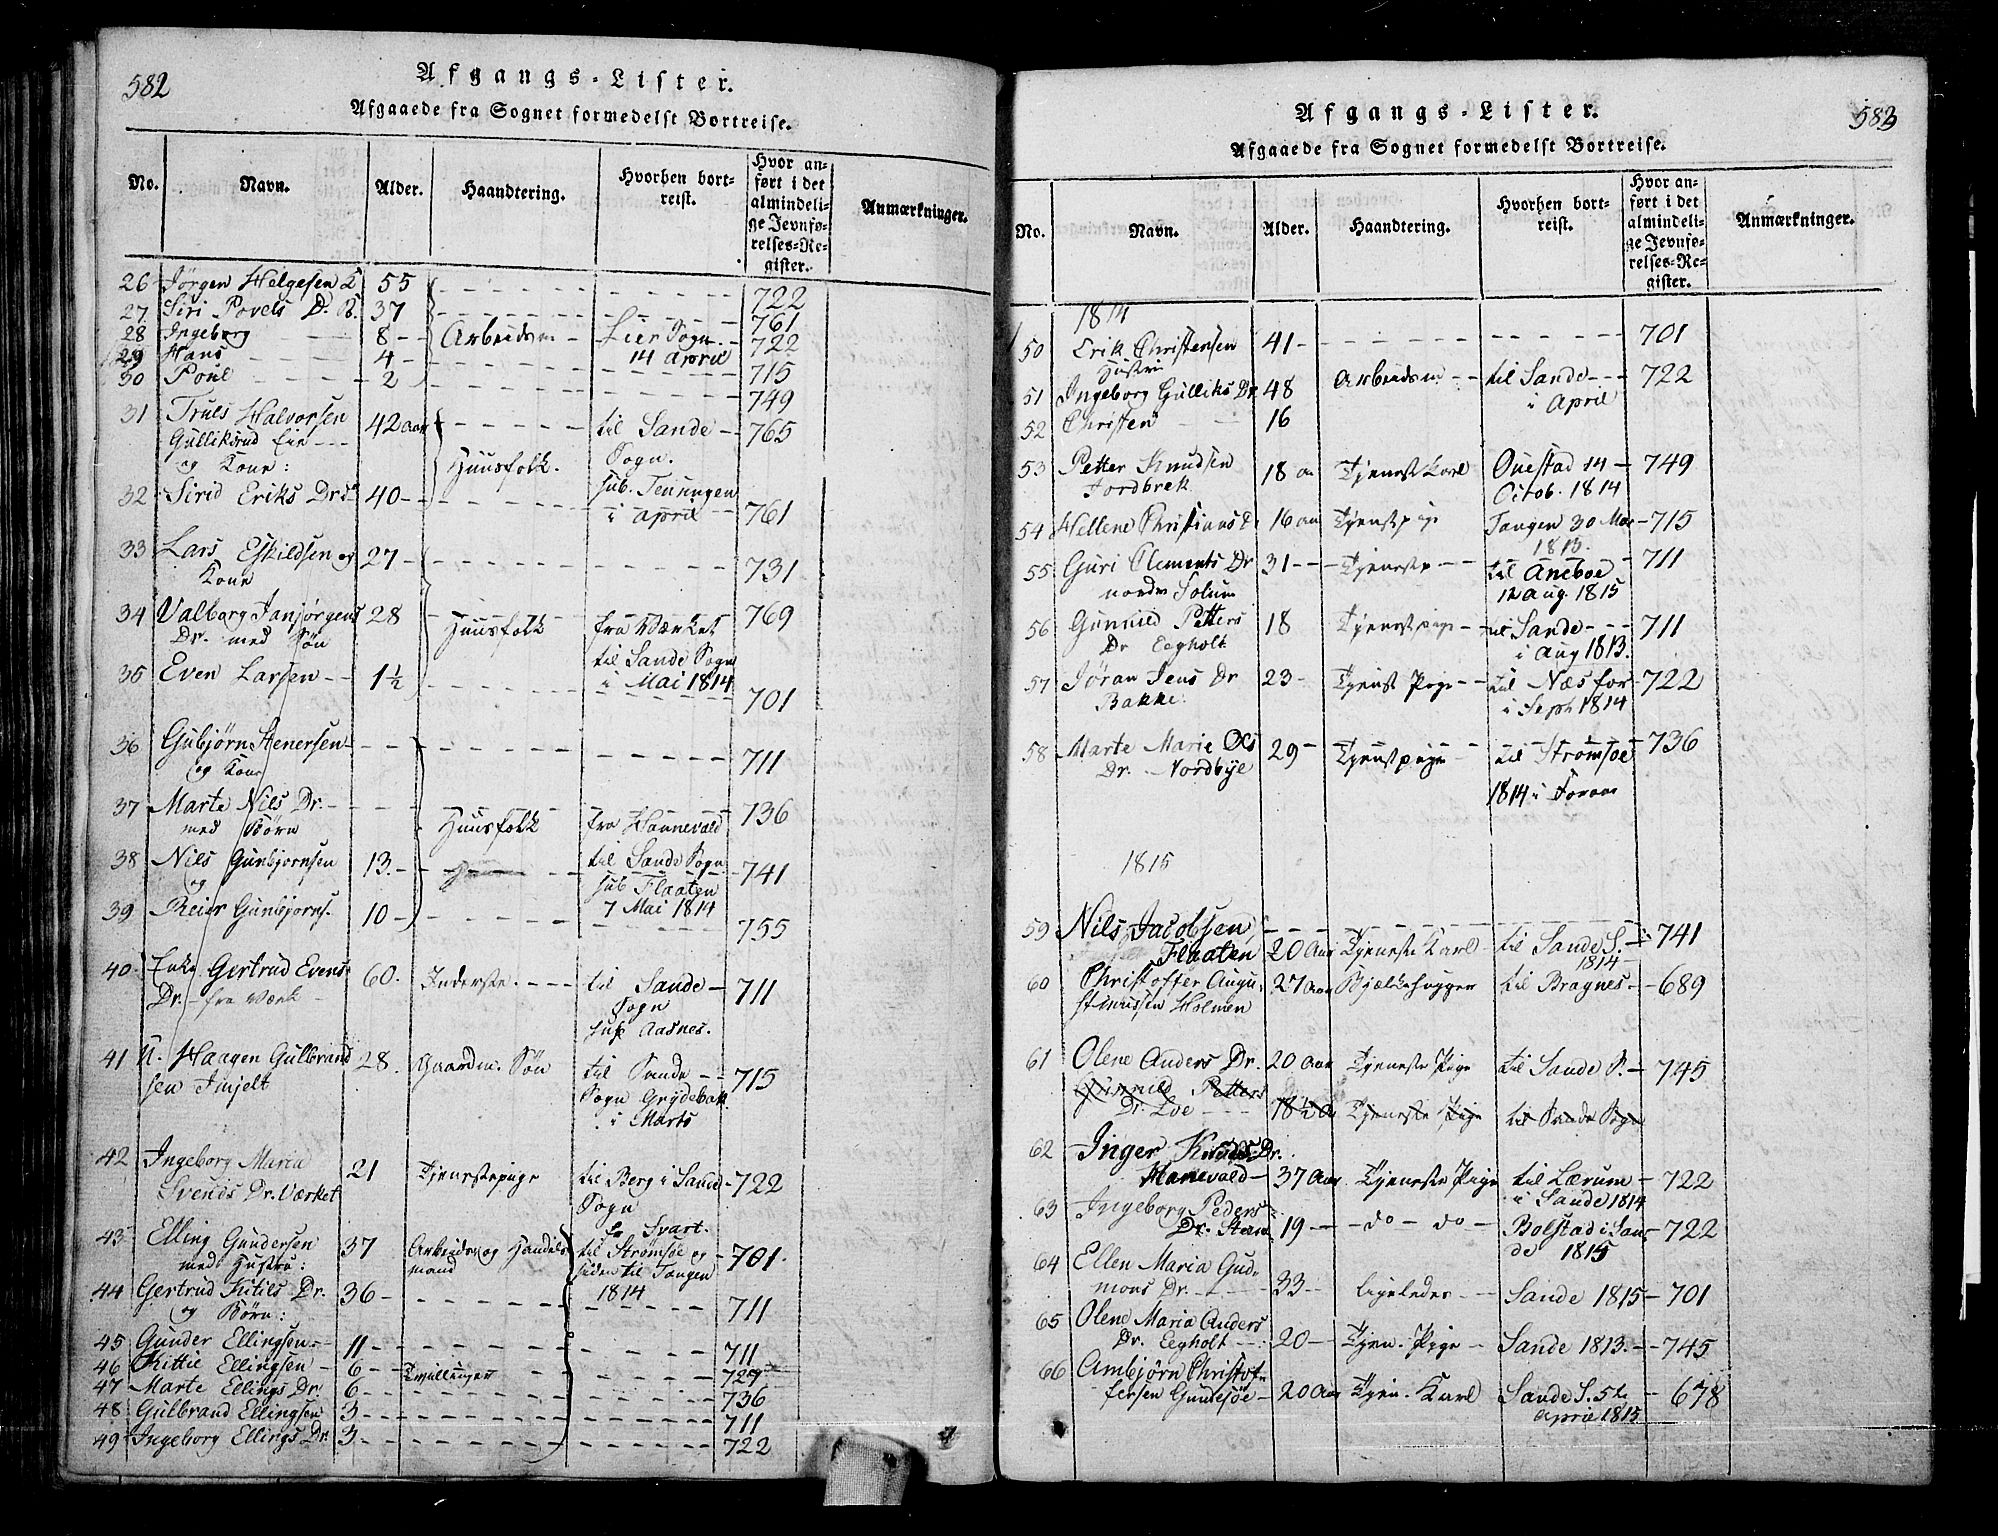 582
Afgangs-Lister.
Afgaaede fra Sognet formedelst Bortreise.
No. Navn. Alder. Haandtering. Hvorhen bortreist. Hvor anført i det almindelige Jevnførelses-Register. Anmærkninger.
26 Jørgen Helgesen 55 722
27. Siri Povels D. 37 761
28 Ingeborg 8 Arbeidsm Lier Sogn 722
29 Hans 4 14 April 715
30 Poul 2 749
31 Truls Halvorsen 42 aar til Sande 765
Gulliksrud Eie
og Kone: Huusfolk. Sogn.
32 Sirid Eriks Dr 40 sub. Tenungen
i April 761
33 Lars Eskildsen og 27 731
Kone
34 Valborg Janjørgens 28 Huusfolk fra Værket 769
Dr. med Søn
til Sande Sogn
35 Even Larsen 1½ i Mai 1814 701
36 Gubjørn Henersen
og Kone 711
37 Marte Nils Dr. 736
med Børn Huusfolk fra Hannevald
38 Nils Gunbjornsen 13. til Sande Sogn 741
og sub Flaaten
39 Reier Gunbjorns. 10 7 Mai 1814 755
40. Enke Gertrud Evens 60. Inderste. til Sande 711
Dr. fra Værk Sogn
sub Aasnes.
41 U. Haagen Gulbrand 28. Gaardm. Søn til Sande 715
sen Injelt Sogn Grydebak
i Marts
42 Ingeborg Maria 21 Tjenestepige til Berg i Sande 722
Svends Dr. Værket Sogn
43 Elling Gundersen 37 Arbeids og Handels til Strømsøe og 701.
med Hustru: mand siden til Tangen
44 Gertrud Kitils Dr. 36 1814 711
og Børn:
45 Gunder Ellingsen 11 711
46 Kittil Ellingsen 6 Tvillinger 729
47 Marte Ellings Dr. 6 736
48 Gulbrand Ellingsen 3 711
49 Ingeborg Ellings Dr. 3 722
583
Afgangs-Lister.
Afgaaede fra Sognet formedelst Bortreise.
No. Navn. Alder. Haandtering. Hvorhen bortreist. Hvor anført i det almindelige Jevnførelses-Register. Anmærkninger.
1814
50 Erik Christensen 41 701
Hustru
51 Ingeborg Gulliks Dr. 48 Arbeidsm til Sande 722
i April
52 Christen 16
53 Petter Knudsen 18 a Tjeneste Karl Ouestad 14 749
Jordbrek Octob. 1814
54 Hellene Christians D. 16 aa Tjenstpige Tangen 30 Mai 715
1813.
55 Guri Clements Dr 31 Tjenestp til Aneboe 711
nordre Solum 12 Aug. 1815
56 Gunnild Petters 18 Tjenestpige til Sande 711
Dr Eegholt i Aug 1813.
57 Jøran Jens Dr 23 Tjenst Pige til Næs for 722
Bakke. i Sept 1814
58 Marte Marie Ols 29 Tjenstpige til Strømsøe 736
Dr. Nordbye
1814 i
1815
59 Nils Jacobsen
Flaaten 20 Aar Tjeneste Karl til Sande S. 741
1814
60 Christoffer Augu 27 Aar Bjælkehugger til Bragnes 689
stinussen Holmen
61 Olene Anders Dr. 20 Aar Tjeneste Pige til Sande S. 745
Gunnild Petters
Dr. Loe 18½ A Tjeneste Pige til Sande Sogn
62 Inger Knuds Dr.
Hanevald 37 Aar Tjeneste Pige til Lærum 722
i Sande 1814
63 Ingeborg Peders
Dr. Steen 19 do do Bolstad i San 722
de 1815
64 Ellen Maria Gud
mons Dr. 33 ligeledes Sande 1815 701
65 Olene Maria Anders
Dr. Eegholt 20 Tjen. Pige Sande 1813. 745
66 Ambjørn Christof
fersen Gundesøe 20 Aar Tjen. Karl Sande S. 5te 678
April 1815